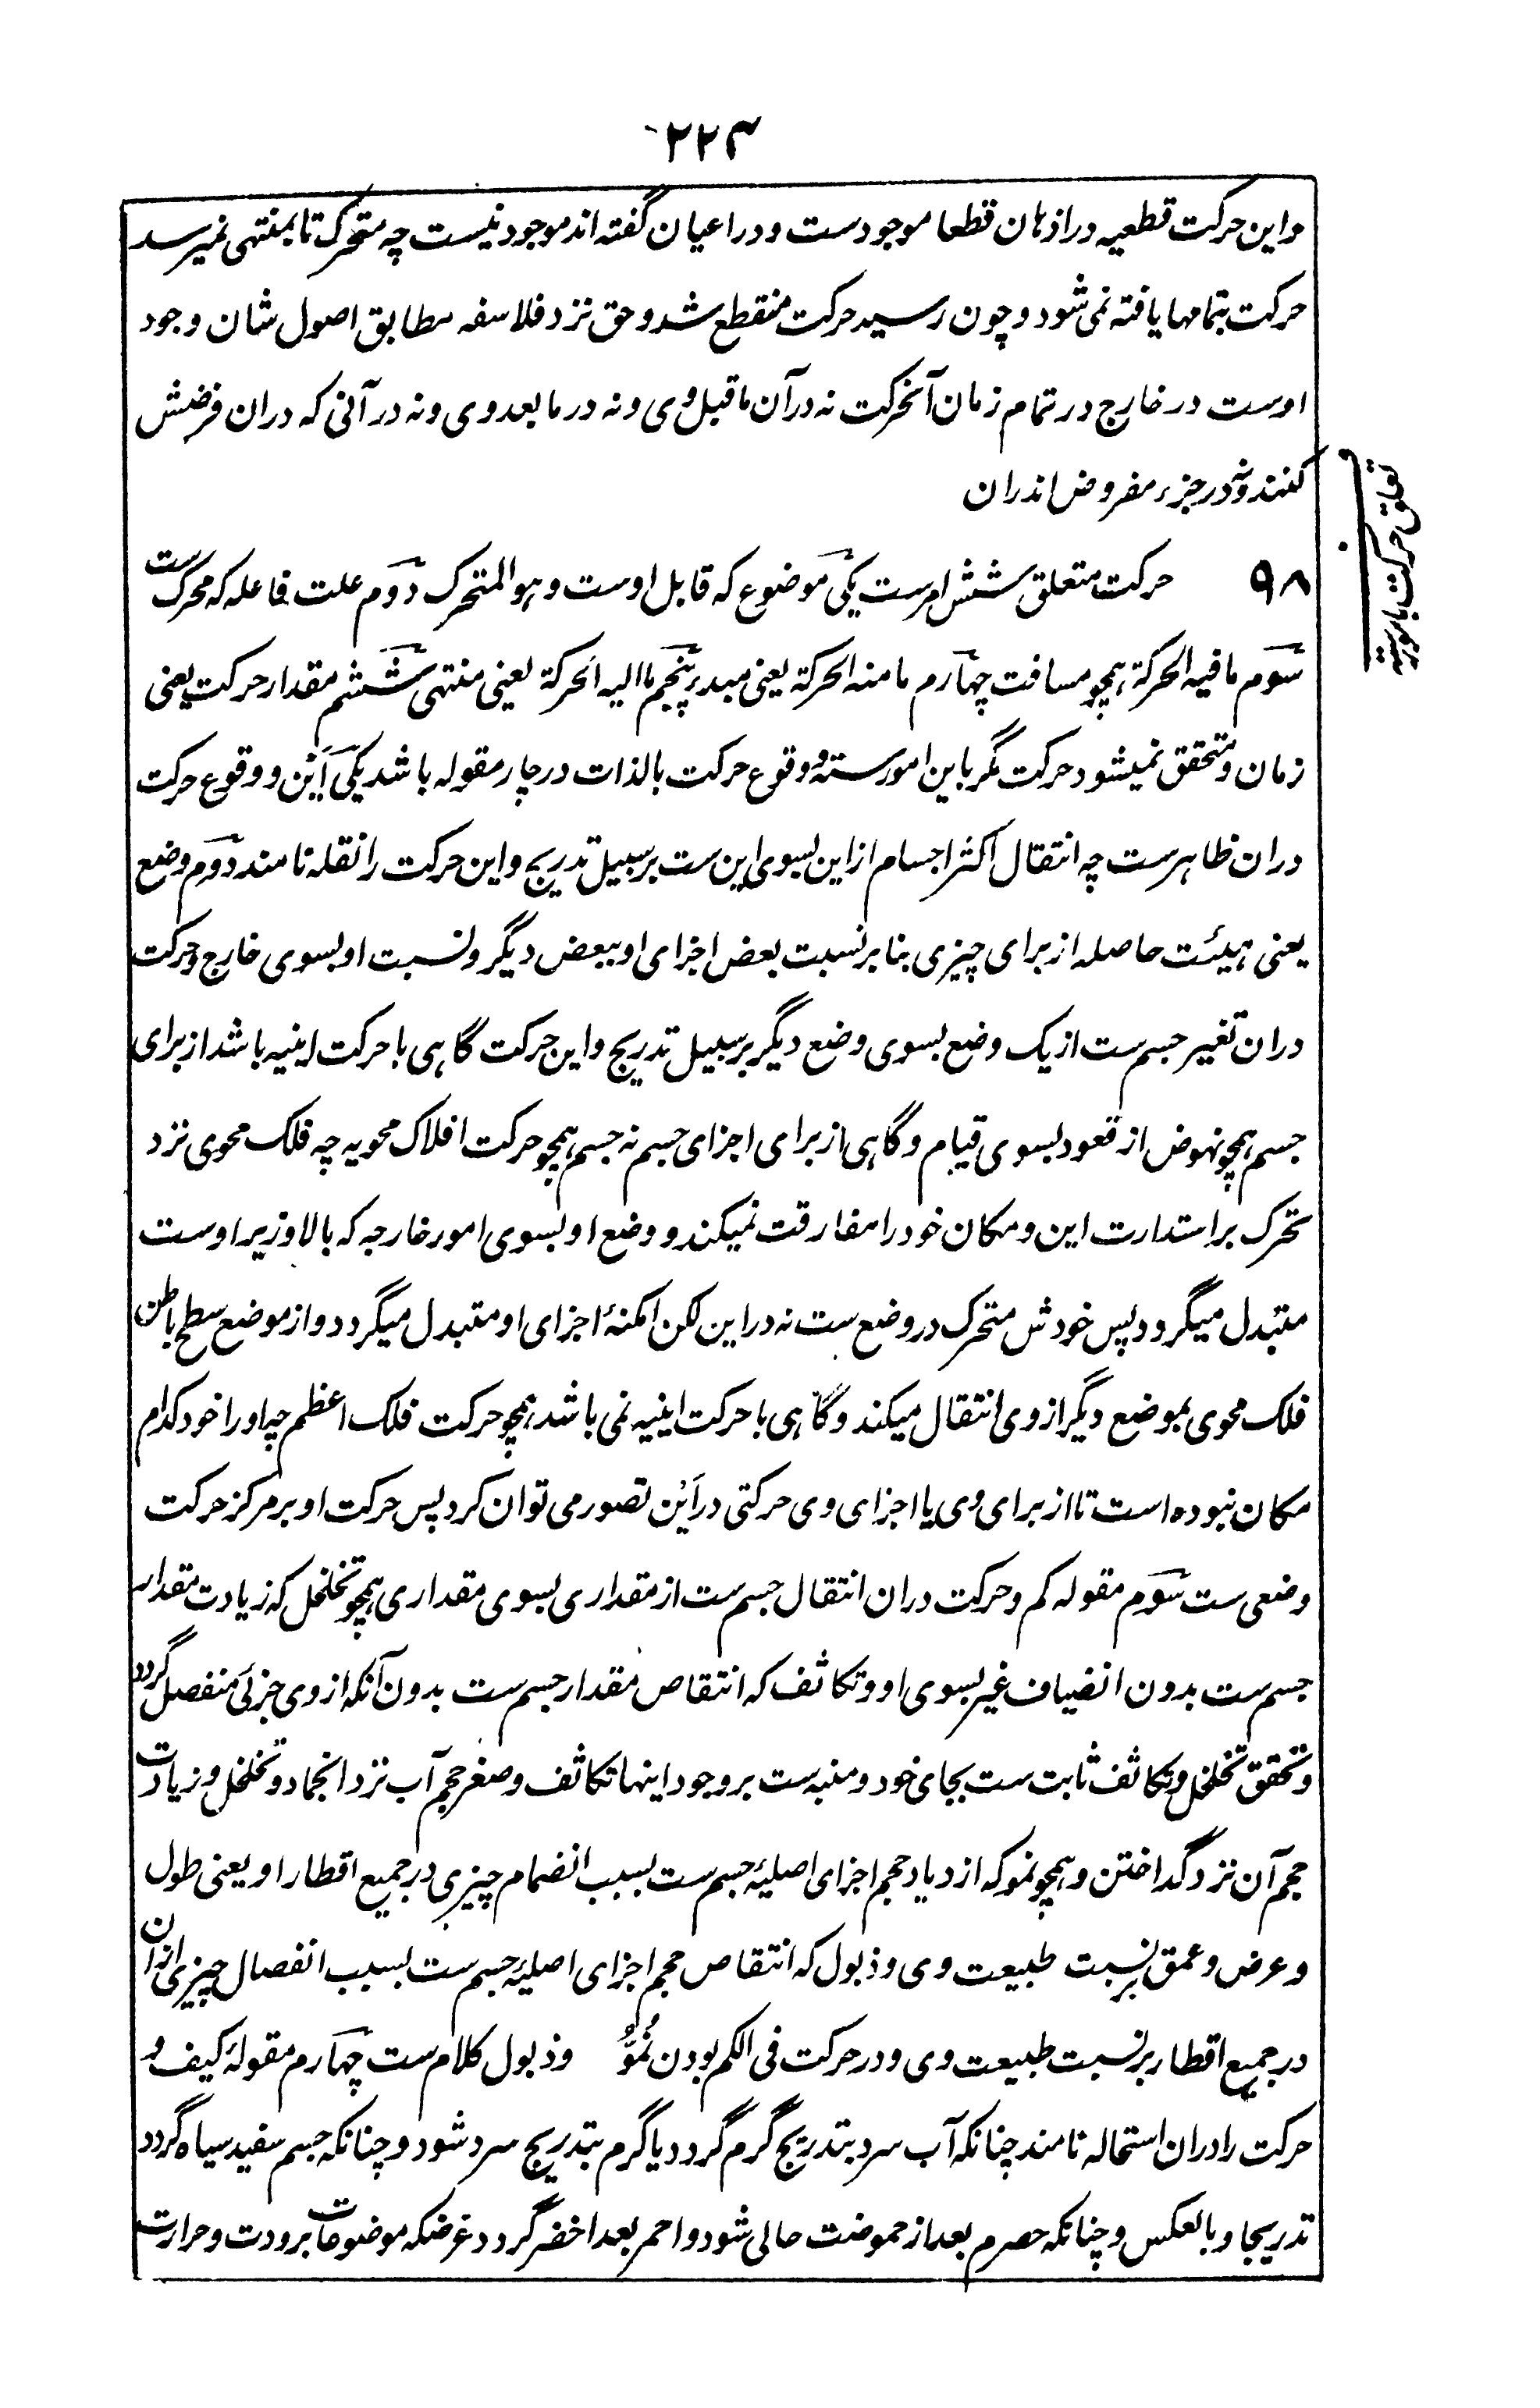 ۲۲۴
واین حرکت قطعیه در اذهان قطعا موجودست و در اعیان گفته اند موجود نیست چه متحرک تا بمنتهی نمیرسد
حرکت بتمامها یافته نمی شود و چون رسید حرکت منقطع شد و حق نزد فلاسفه مطابق اصول شان وجود
اوست در خارج در تمام زمان آنحرکت نه در آن ماقبل وی و نه در مابعد وی و نه در آنی که دران فرضش
کنند و نه در جزء مفروض اندران
تعلق حرکت بامور ستة
۹۸ حرکت متعلق بشش امرست یکی موضوع که قابل اوست و هو المتحرک دوم علت فاعله که محرک ست
سوم ما فیه الحرکة همچو مسافت چهارم ما منه الحرکة یعنی مبدء پنجم ما الیه الحرکة یعنی منتهی ششم مقدار حرکت یعنی
زمان و متحقق نمیشود حرکت مگر باین امور سته و وقوع حرکت بالذات در چار مقوله باشد یکی اَیْن و وقوع حرکت
دران ظاهرست چه انتقال اکثر اجسام از این بسوی این ست بر سبیل تدریج و این حرکت را نقله نامند دوم وضع
یعنی هیئت حاصله از برای چیزی بنا بر نسبت بعض اجزای او ببعض دیگر و نسبت او بسوی خارج و حرکت
دران تغییر جسم ست از یک وضع بسوی وضع دیگر بر سبیل تدریج و این حرکت گاهی با حرکت اینیه باشد از برای
جسم همچو نهوض از قعود بسوی قیام و گاهی از برای اجزای جسم نه جسم همچو حرکت افلاک محویه چه فلک محوی نزد
تحرک بر استدارت این و مکان خود را مفارقت نمیکند و وضع او بسوی امور خارجه که بالا و زیر اوست
متبدل میگردد پس خودش متحرک در وضع ست نه در این لکن امکنهٔ اجزای او متبدل میگردد و از موضع سطح باطن
فلک محوی بموضع دیگر از وی انتقال میکند و گاهی با حرکت اینیه نمی باشد همچو حرکت فلک اعظم چه او را خود کدام
مکان نبوده است تا از برای وی یا اجزای وی حرکتی در اَیْن تصور می توان کرد پس حرکت او بر مرکز حرکت
وضعی ست سوم مقوله کم و حرکت دران انتقال جسم ست از مقداری بسوی مقداری همچو تخلخل که زیادت مقدار
جسم ست بدون انضیاف غیر بسوی او و تکاثف که انتقاص مقدار جسم ست بدون آنکه از وی جزئی منفصل گردد
و تحقق تخلخل و تکاثف ثابت ست بجای خود و منبه ست بر وجود اینها تکاثف و صغر حجم آب نزد انجماد و تخلخل و زیادت
حجم آن نزد گداختن و همچو نمو که ازدیاد حجم اجزای اصلیهٔ جسم ست بسبب انضمام چیزی در جمیع اقطار او یعنی طول
و عرض و عمق بر نسبت طبیعت وی و ذبول که انتقاص حجم اجزای اصلیهٔ جسم ست بسبب انفصال چیزی از ان
در جمیع اقطار بر نسبت طبیعت وی و در حرکت فی الکم بودن نُمُوّ و ذبول کلام ست چهارم مقولهٔ کیف و
حرکت را دران استحاله نامند چنانکه آب سرد بتدریج گرم گردد یا گرم بتدریج سرد شود و چنانکه جسم سفید سیاه گردد
تدریجا و بالعکس و چنانکه حصرم بعد از حموضت حالی شود و احمر بعد اخضر گردد غرضکه موضوعات برودت و حرارت